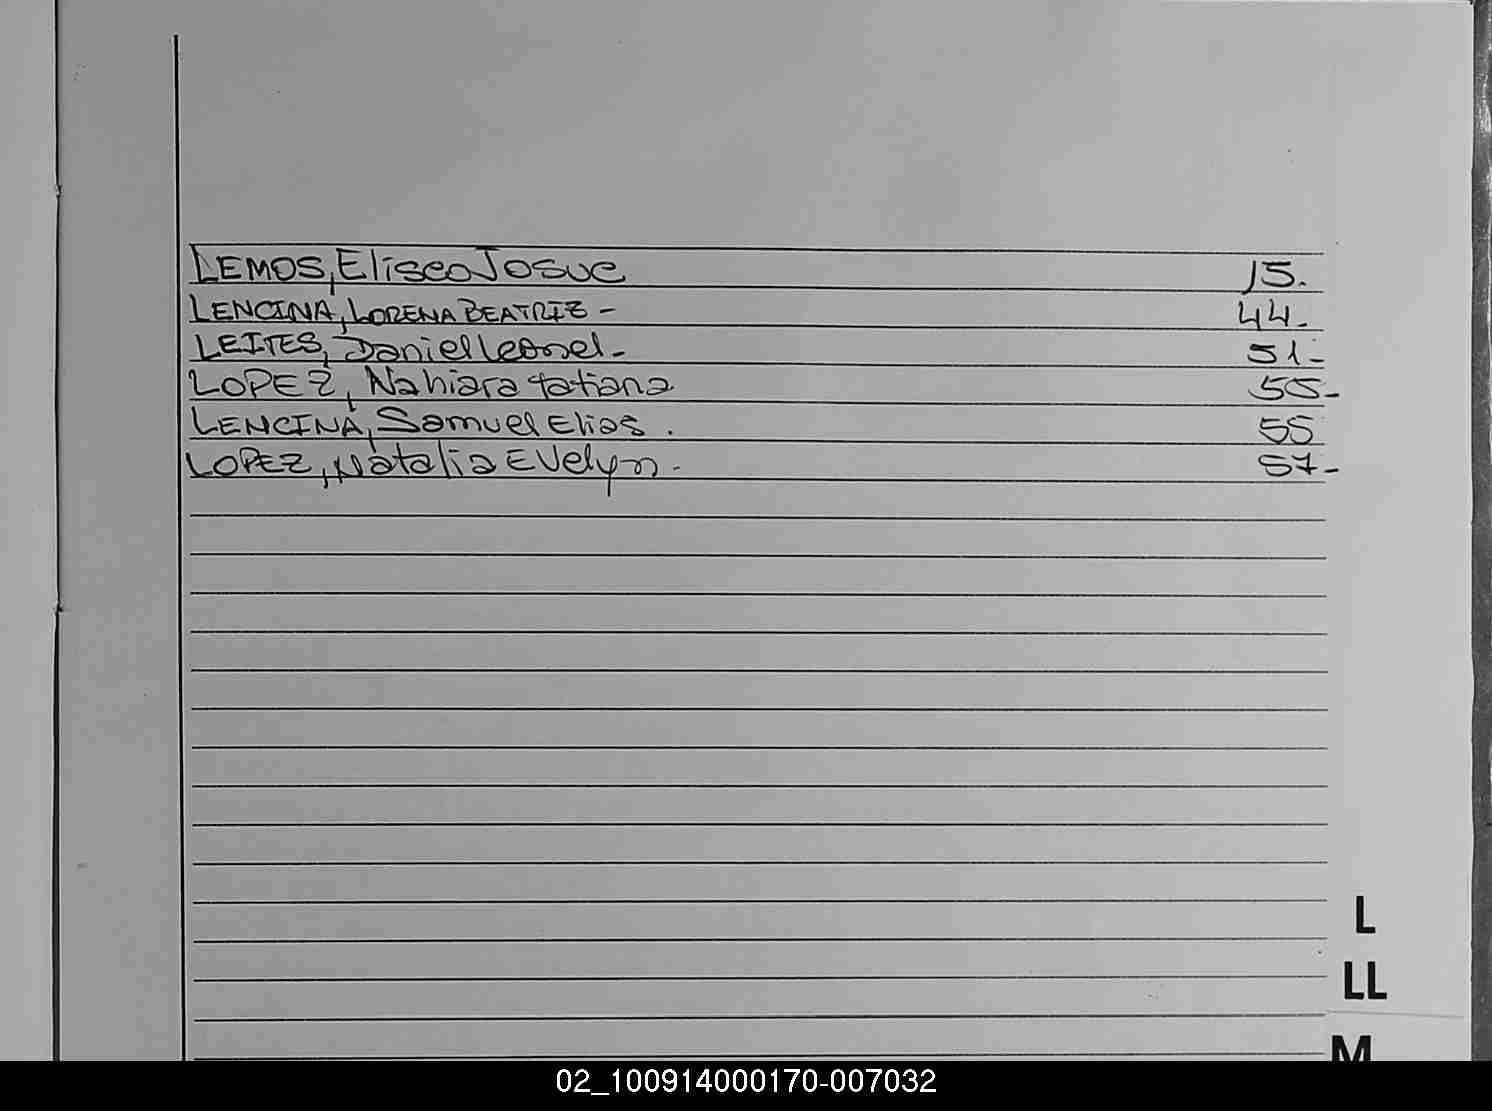 LEMOS, Eliseo Josue 15.
LENCINA, LORENA BEATRIZ - 44.
LEITES, Daniel Leonel - 51-
LOPEZ, Nahiara tatiana 55-
LENCINA, Samuel Elias . 55
LOPEZ, Natalia EVelyn - 57-
L
LL
M
02_100914000170-007032